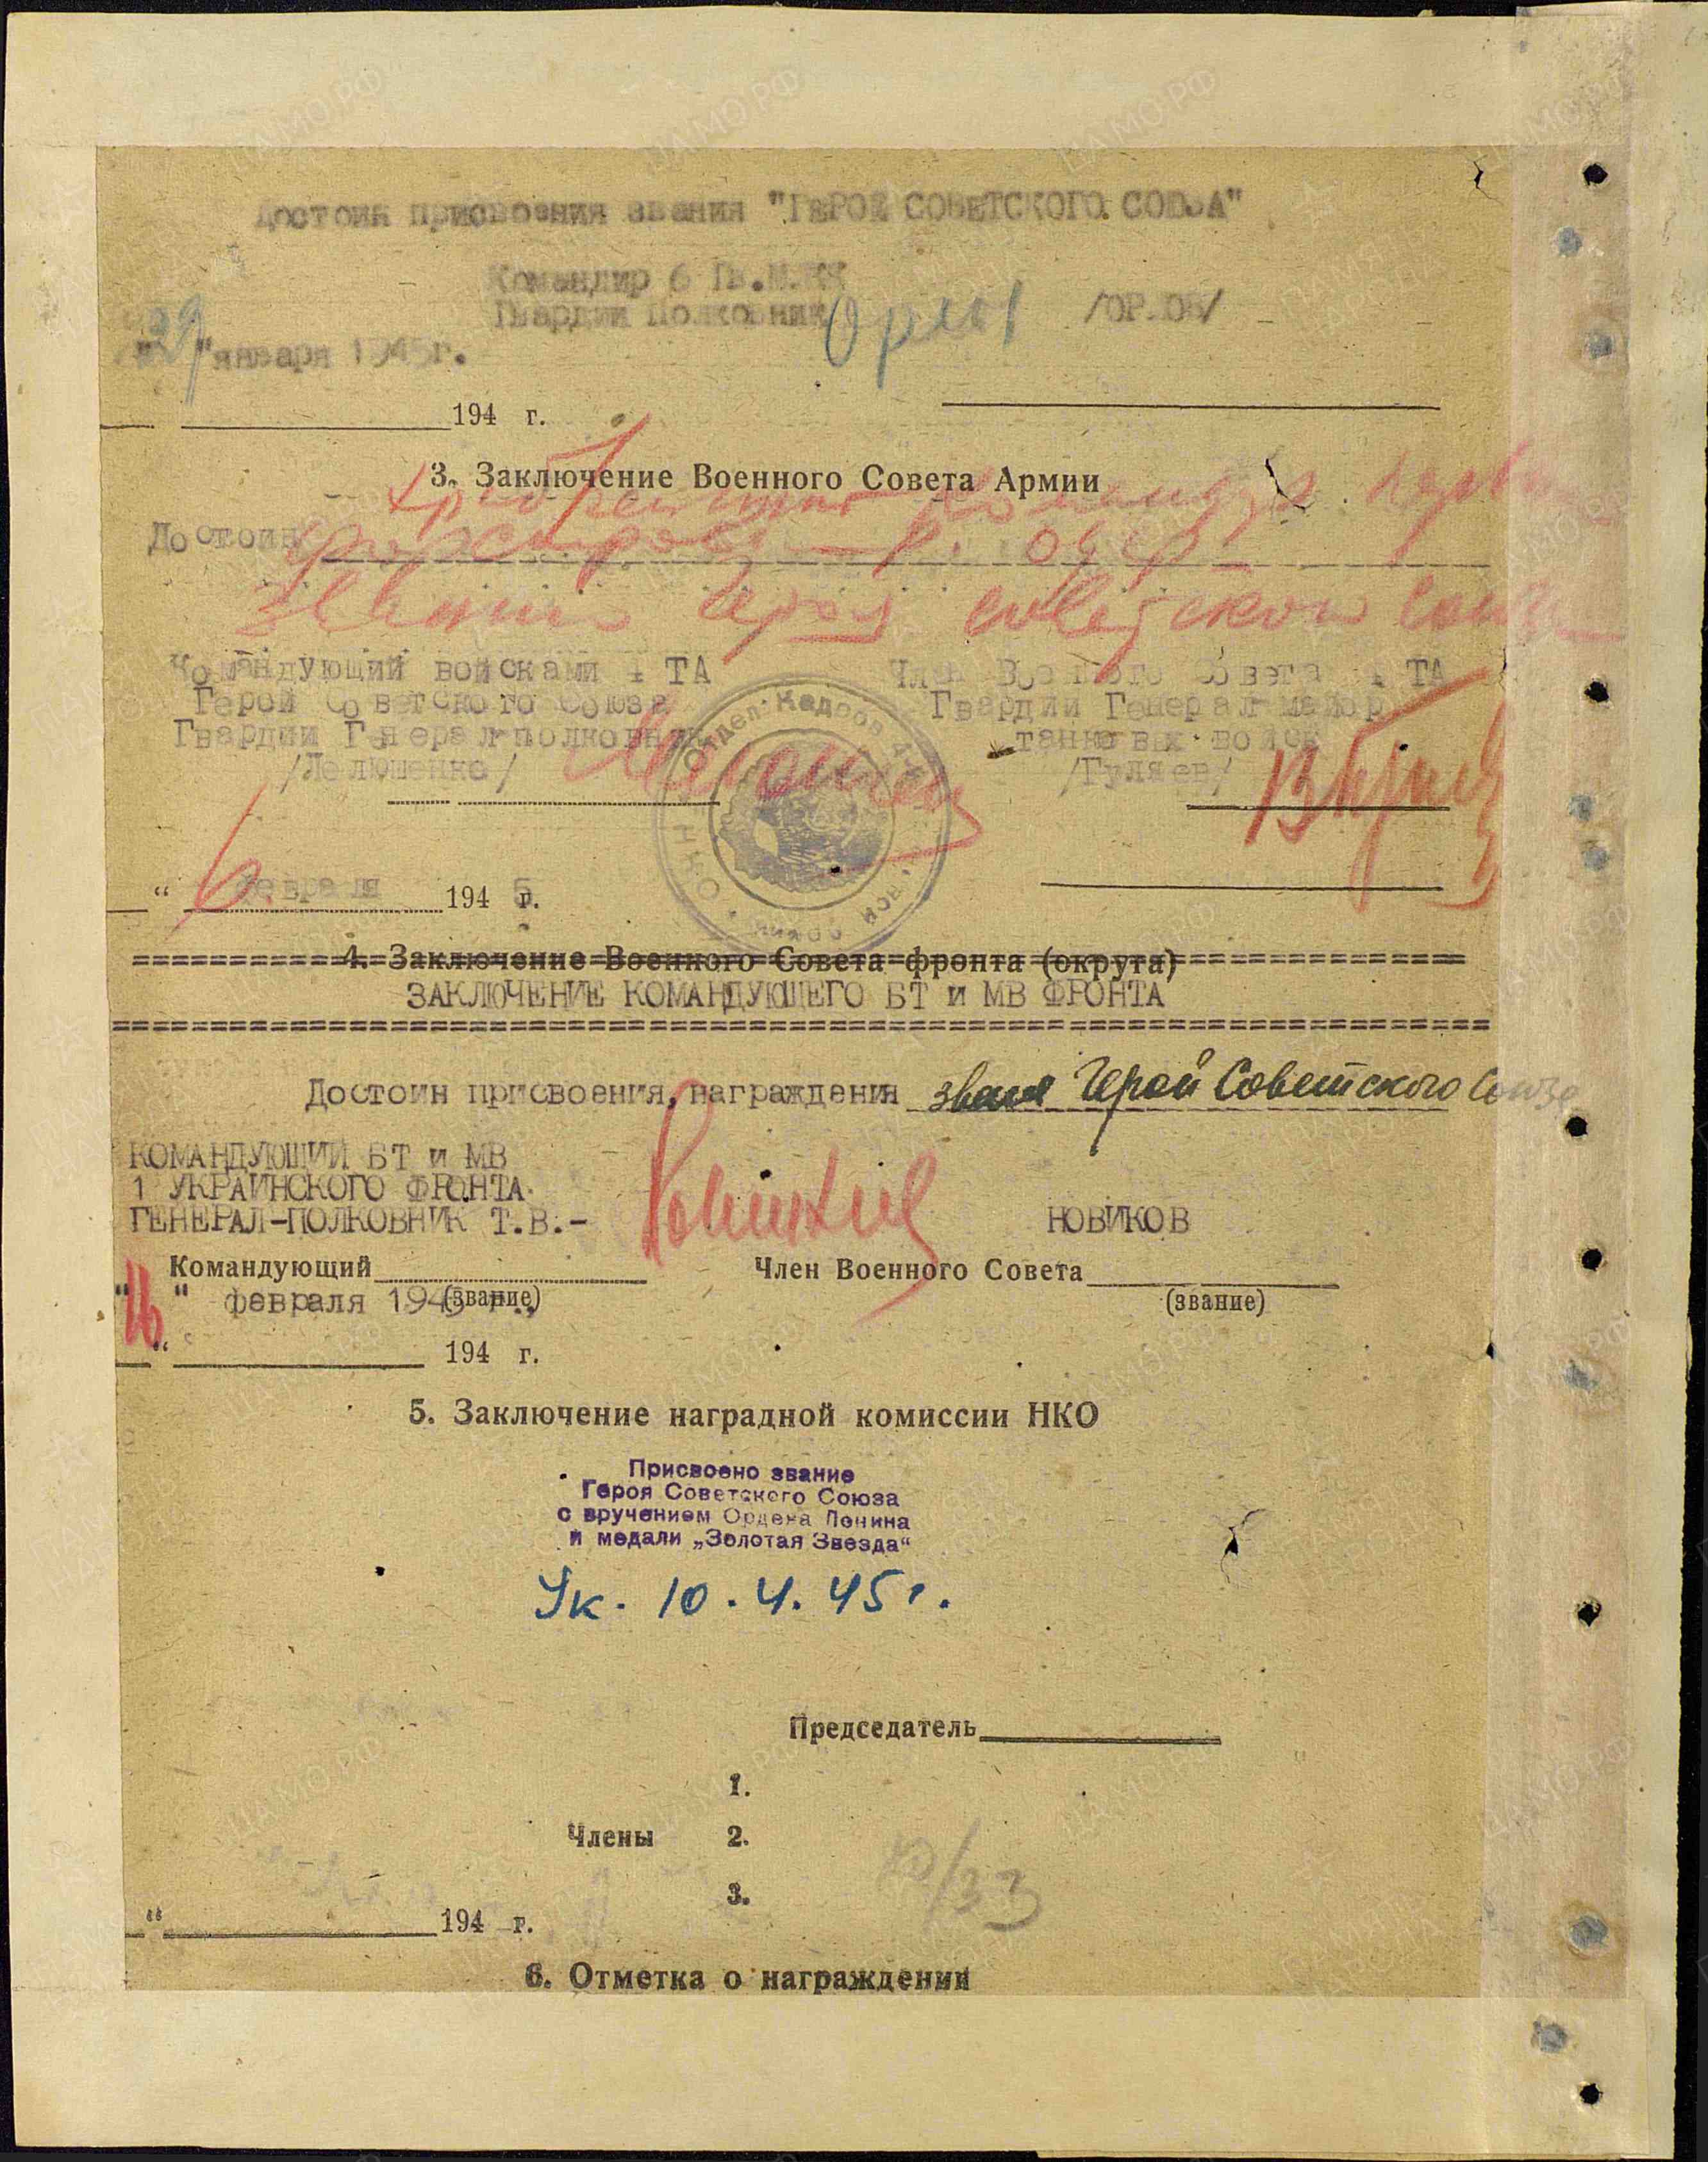 Достоин присвоения звания "ГЕРОЙ СОВЕТСКОГО СОЮЗА"
Командир 6 Гв.М.
Гвардии Полковник /ОРЛОВ/
"29" января 1945г.
194 г.
3. Заключение Военного Совета Армии
Достоин
форсировавший р. Одер
звания Героя Советского Союза
Командующий войсками 4 ТА
Герой Советского Союза
Гвардии Генерал-полковник
/Лелюшенко/
Член Военного Совета 4 ТА
Гвардии Генерал-майор
танковых войск
/Гуляев/
Отдел Кадров
"6 февраля 1945 г.
4. Заключение Военного Совета фронта (округа)
ЗАКЛЮЧЕНИЕ КОМАНДУЮЩЕГО БТ и МВ ФРОНТА
Достоин присвоения, награждения звания Герой Советского Союза
КОМАНДУЮЩИЙ БТ и МВ
1 УКРАИНСКОГО ФРОНТА
ГЕНЕРАЛ-ПОЛКОВНИК Т.В.- НОВИКОВ
Командующий Член Военного Совета
"16" февраля 1945 (звание) (звание)
" 194 г.
5. Заключение наградной комиссии НКО
Присвоено звание
Героя Советского Союза
с вручением Ордена Ленина
и медали „Золотая Звезда“
Ук. 10.4.45г.
Председатель
1.
Члены 2.
3.
" 194 г.
6. Отметка о награждении